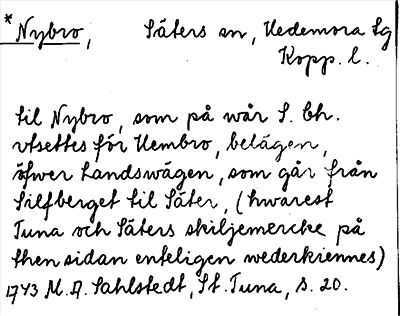 *Nybro, Säters sn, Hedemora tg
Kopp. l.
til Nybro, som på wår S. Ch.
vtsettes för Hembro, belägen,
öfwer Landswägen, som går från
Silfberget til Säter, (hwarest
Tuna och Säters skiljemercke på
then sidan enteligen wederkiennes)
1743 M. A. Sahlstedt, St. Tuna, s. 20.